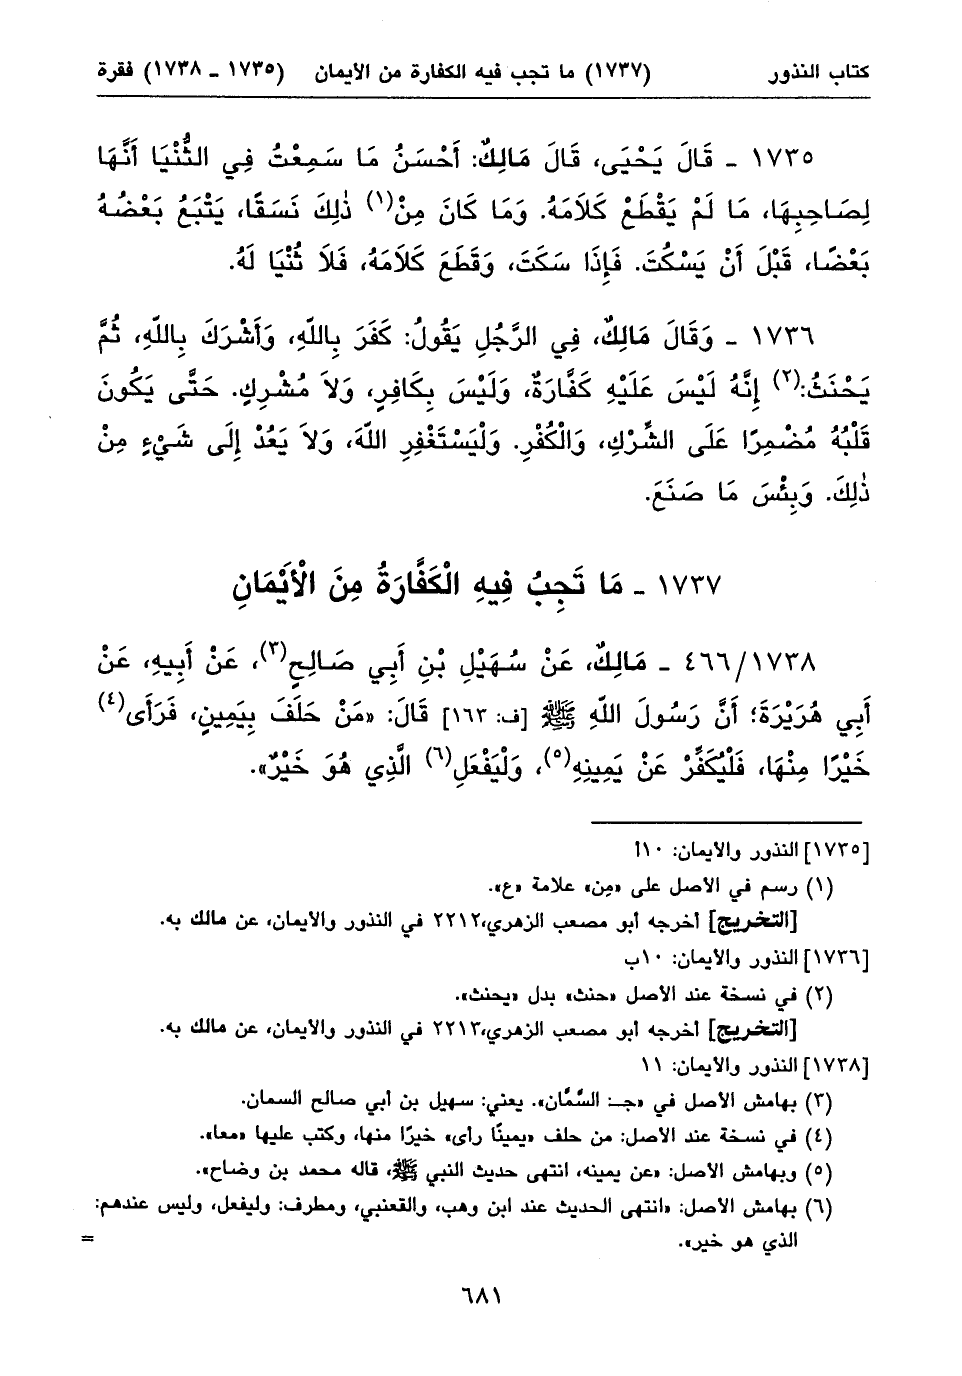 كتاب النذور (١٧٣٧) ما تجب فيه الكفارة من الأيمان (١٧٣٥ - ١٧٣٨) فقرة
١٧٣٥ - قَالَ يَحْيَى، قَالَ مَالِكٌ: أَحْسَنُ مَا سَمِعْتُ فِي الثُّنْيَا أَنَّهَا
لِصَاحِبِهَا، مَا لَمْ يَقْطَعْ كَلَامَهُ. وَمَا كَانَ مِنْ(١) ذٰلِكَ نَسَقًا، يَتْبَعُ بَعْضُهُ
بَعْضًا، قَبْلَ أَنْ يَسْكُتَ. فَإِذَا سَكَتَ، وَقَطَعَ كَلَامَهُ، فَلَا ثُنْيَا لَهُ.
١٧٣٦ - وَقَالَ مَالِكٌ، فِي الرَّجُلِ يَقُولُ: كَفَرَ بِاللهِ، وَأَشْرَكَ بِاللهِ، ثُمَّ
يَحْنَثُ:(٢) إِنَّهُ لَيْسَ عَلَيْهِ كَفَّارَةٌ، وَلَيْسَ بِكَافِرٍ، وَلَا مُشْرِكٍ. حَتَّى يَكُونَ
قَلْبُهُ مُضْمِرًا عَلَى الشِّرْكِ، وَالْكُفْرِ. وَلْيَسْتَغْفِرِ اللهَ، وَلَا يَعُدْ إِلَى شَيْءٍ مِنْ
ذٰلِكَ. وَبِئْسَ مَا صَنَعَ.
١٧٣٧ - مَا تَجِبُ فِيهِ الْكَفَّارَةُ مِنَ الْأَيْمَانِ
٤٦٦/١٧٣٨ - مَالِكٌ، عَنْ سُهَيْلِ بْنِ أَبِي صَالِحٍ(٣)، عَنْ أَبِيهِ، عَنْ
أَبِي هُرَيْرَةَ؛ أَنَّ رَسُولَ اللهِ ﷺ [ف: ١٦٣] قَالَ: «مَنْ حَلَفَ بِيَمِينٍ، فَرَأَى(٤)
خَيْرًا مِنْهَا، فَلْيُكَفِّرْ عَنْ يَمِينِهِ(٥)، وَلْيَفْعَلِ(٦) الَّذِي هُوَ خَيْرٌ».
[١٧٣٥] النذور والأيمان: ١٠أ
(١) رسم في الأصل على «مِن» علامة «ع».
[التخريج] أخرجه أبو مصعب الزهري،٢٢١٢ في النذور والأيمان، عن مالك به.
[١٧٣٦] النذور والأيمان: ١٠ب
(٢) في نسخة عند الأصل «حنث» بدل «يحنث».
[التخريج] أخرجه أبو مصعب الزهري،٢٢١٣ في النذور والأيمان، عن مالك به.
[١٧٣٨] النذور والأيمان: ١١
(٣) بهامش الأصل في «جـ: السَّمَّان». يعني: سهيل بن أبي صالح السمان.
(٤) في نسخة عند الأصل: من حلف «يمينًا رأى» خيرًا منها، وكتب عليها «معا».
(٥) وبهامش الأصل: «عن يمينه، انتهى حديث النبي ﷺ، قاله محمد بن وضاح».
(٦) بهامش الأصل: «انتهى الحديث عند ابن وهب، والقعنبي، ومطرف: وليفعل، وليس عندهم:
الذي هو خير». =
٦٨١